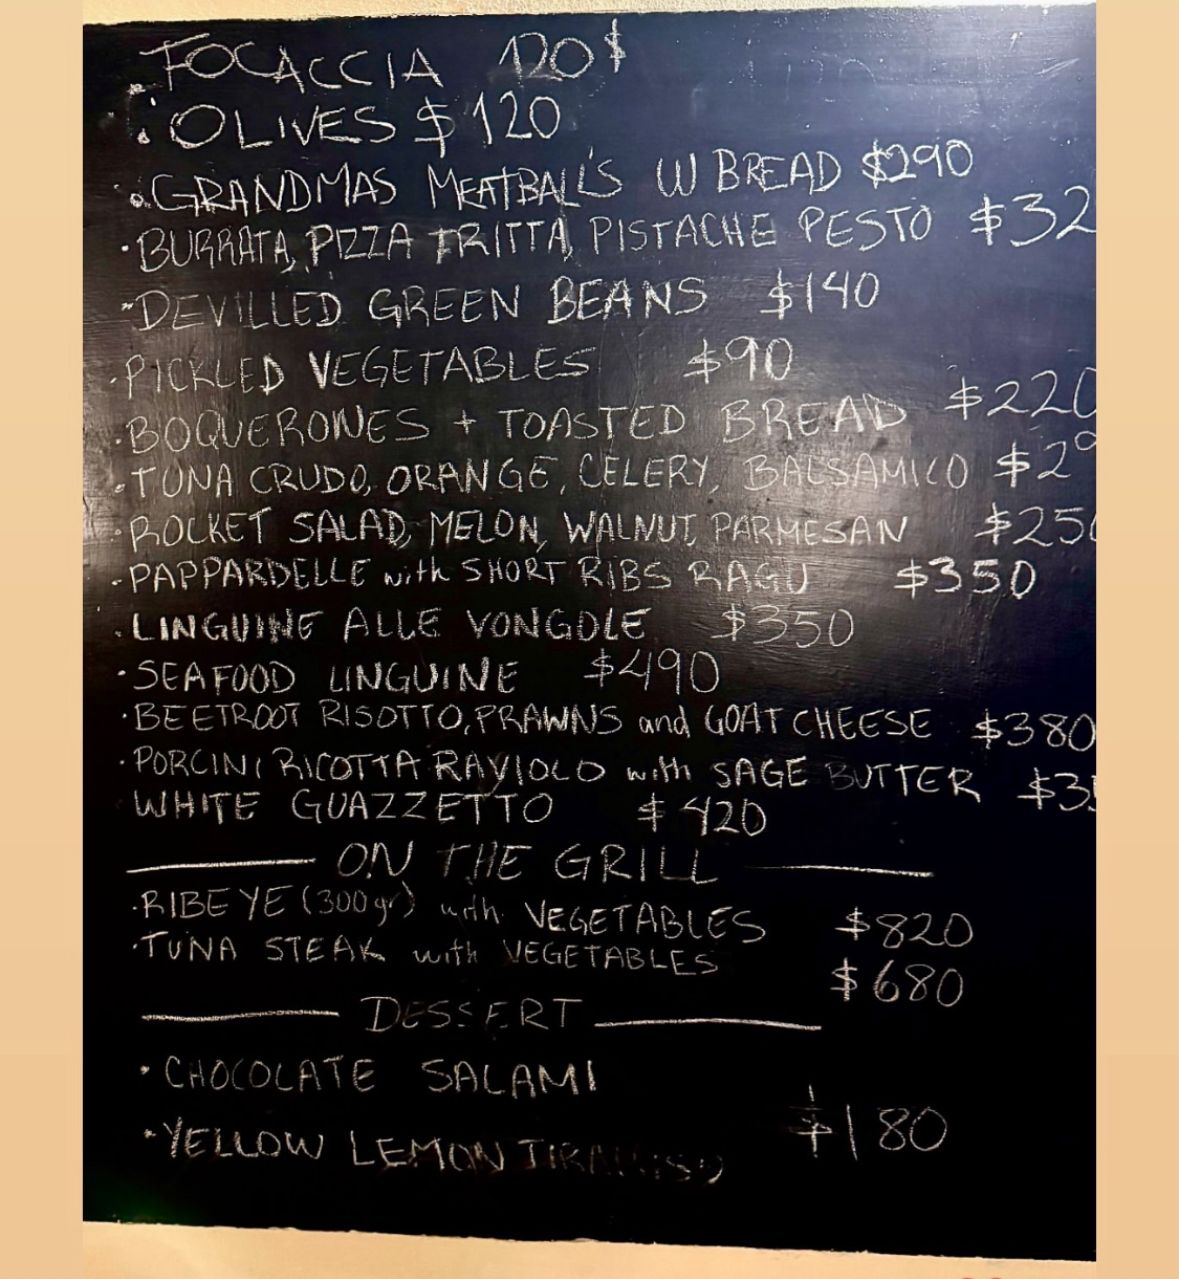 FOCACCIA 120$
OLIVES $120
GRANDMAS MEATBALLS W BREAD $290
BURRATA, PIZZA FRITTA, PISTACHE PESTO $32
DEVILLED GREEN BEANS $140
PICKLED VEGETABLES $90
BOQUERONES + TOASTED BREAD $220
TUNA CRUDO, ORANGE, CELERY, BALSAMICO $29
ROCKET SALAD, MELON, WALNUT, PARMESAN $250
PAPPARDELLE with SHORT RIBS RAGU $350
LINGUINE ALLE VONGOLE $350
SEAFOOD LINGUINE $490
BEETROOT RISOTTO, PRAWNS and GOAT CHEESE $380
PORCINI RICOTTA RAVIOLO with SAGE BUTTER $35
WHITE GUAZZETTO $420
ON THE GRILL
RIBEYE (300gr) with VEGETABLES $820
TUNA STEAK with VEGETABLES $680
DESSERT
CHOCOLATE SALAMI
YELLOW LEMON TIRAMISU $180